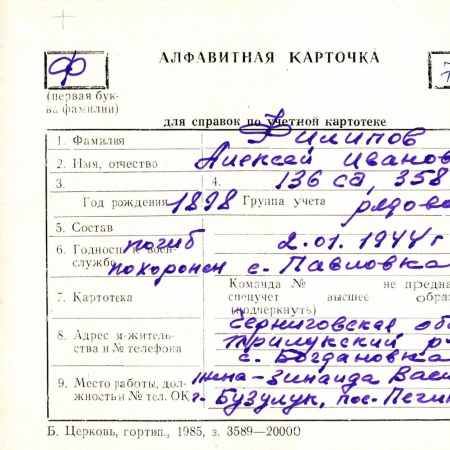 АЛФАВИТНАЯ КАРТОЧКА
Ф
(первая бук-
ва фамилии)
для справок по учетной картотеке
1. Фамилия Филипов
2. Имя, отчество Алексей Иванов
3. 4. 136 сд, 358
Год рождения 1898 Группа учета рядово
5. Состав
6. Годность к воен- погиб 2.01.1944 г
службе похоронен с. Павловка
Команда № не предна
7. Картотека спецучет высшее образ
(подчеркнуть)
Черниговская об
8. Адрес и житель- Прилукский р
ства и № телефона с. Богдановка
9. Место работы, дол- жена-Зинаида Васи
жность и № тел. ОК г. Бузулук, пос.
Б. Церковь, гортип., 1985, з. 3589—20000